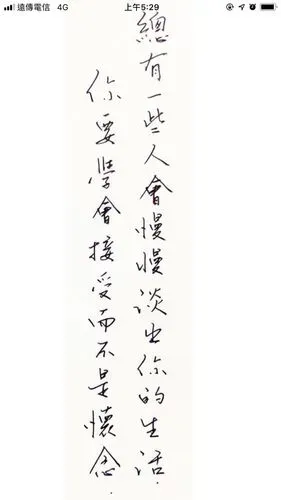 遠傳電信 4G 上午5:29
總有一些人會慢慢淡出你的生活.
你要學會接受而不是懷念.